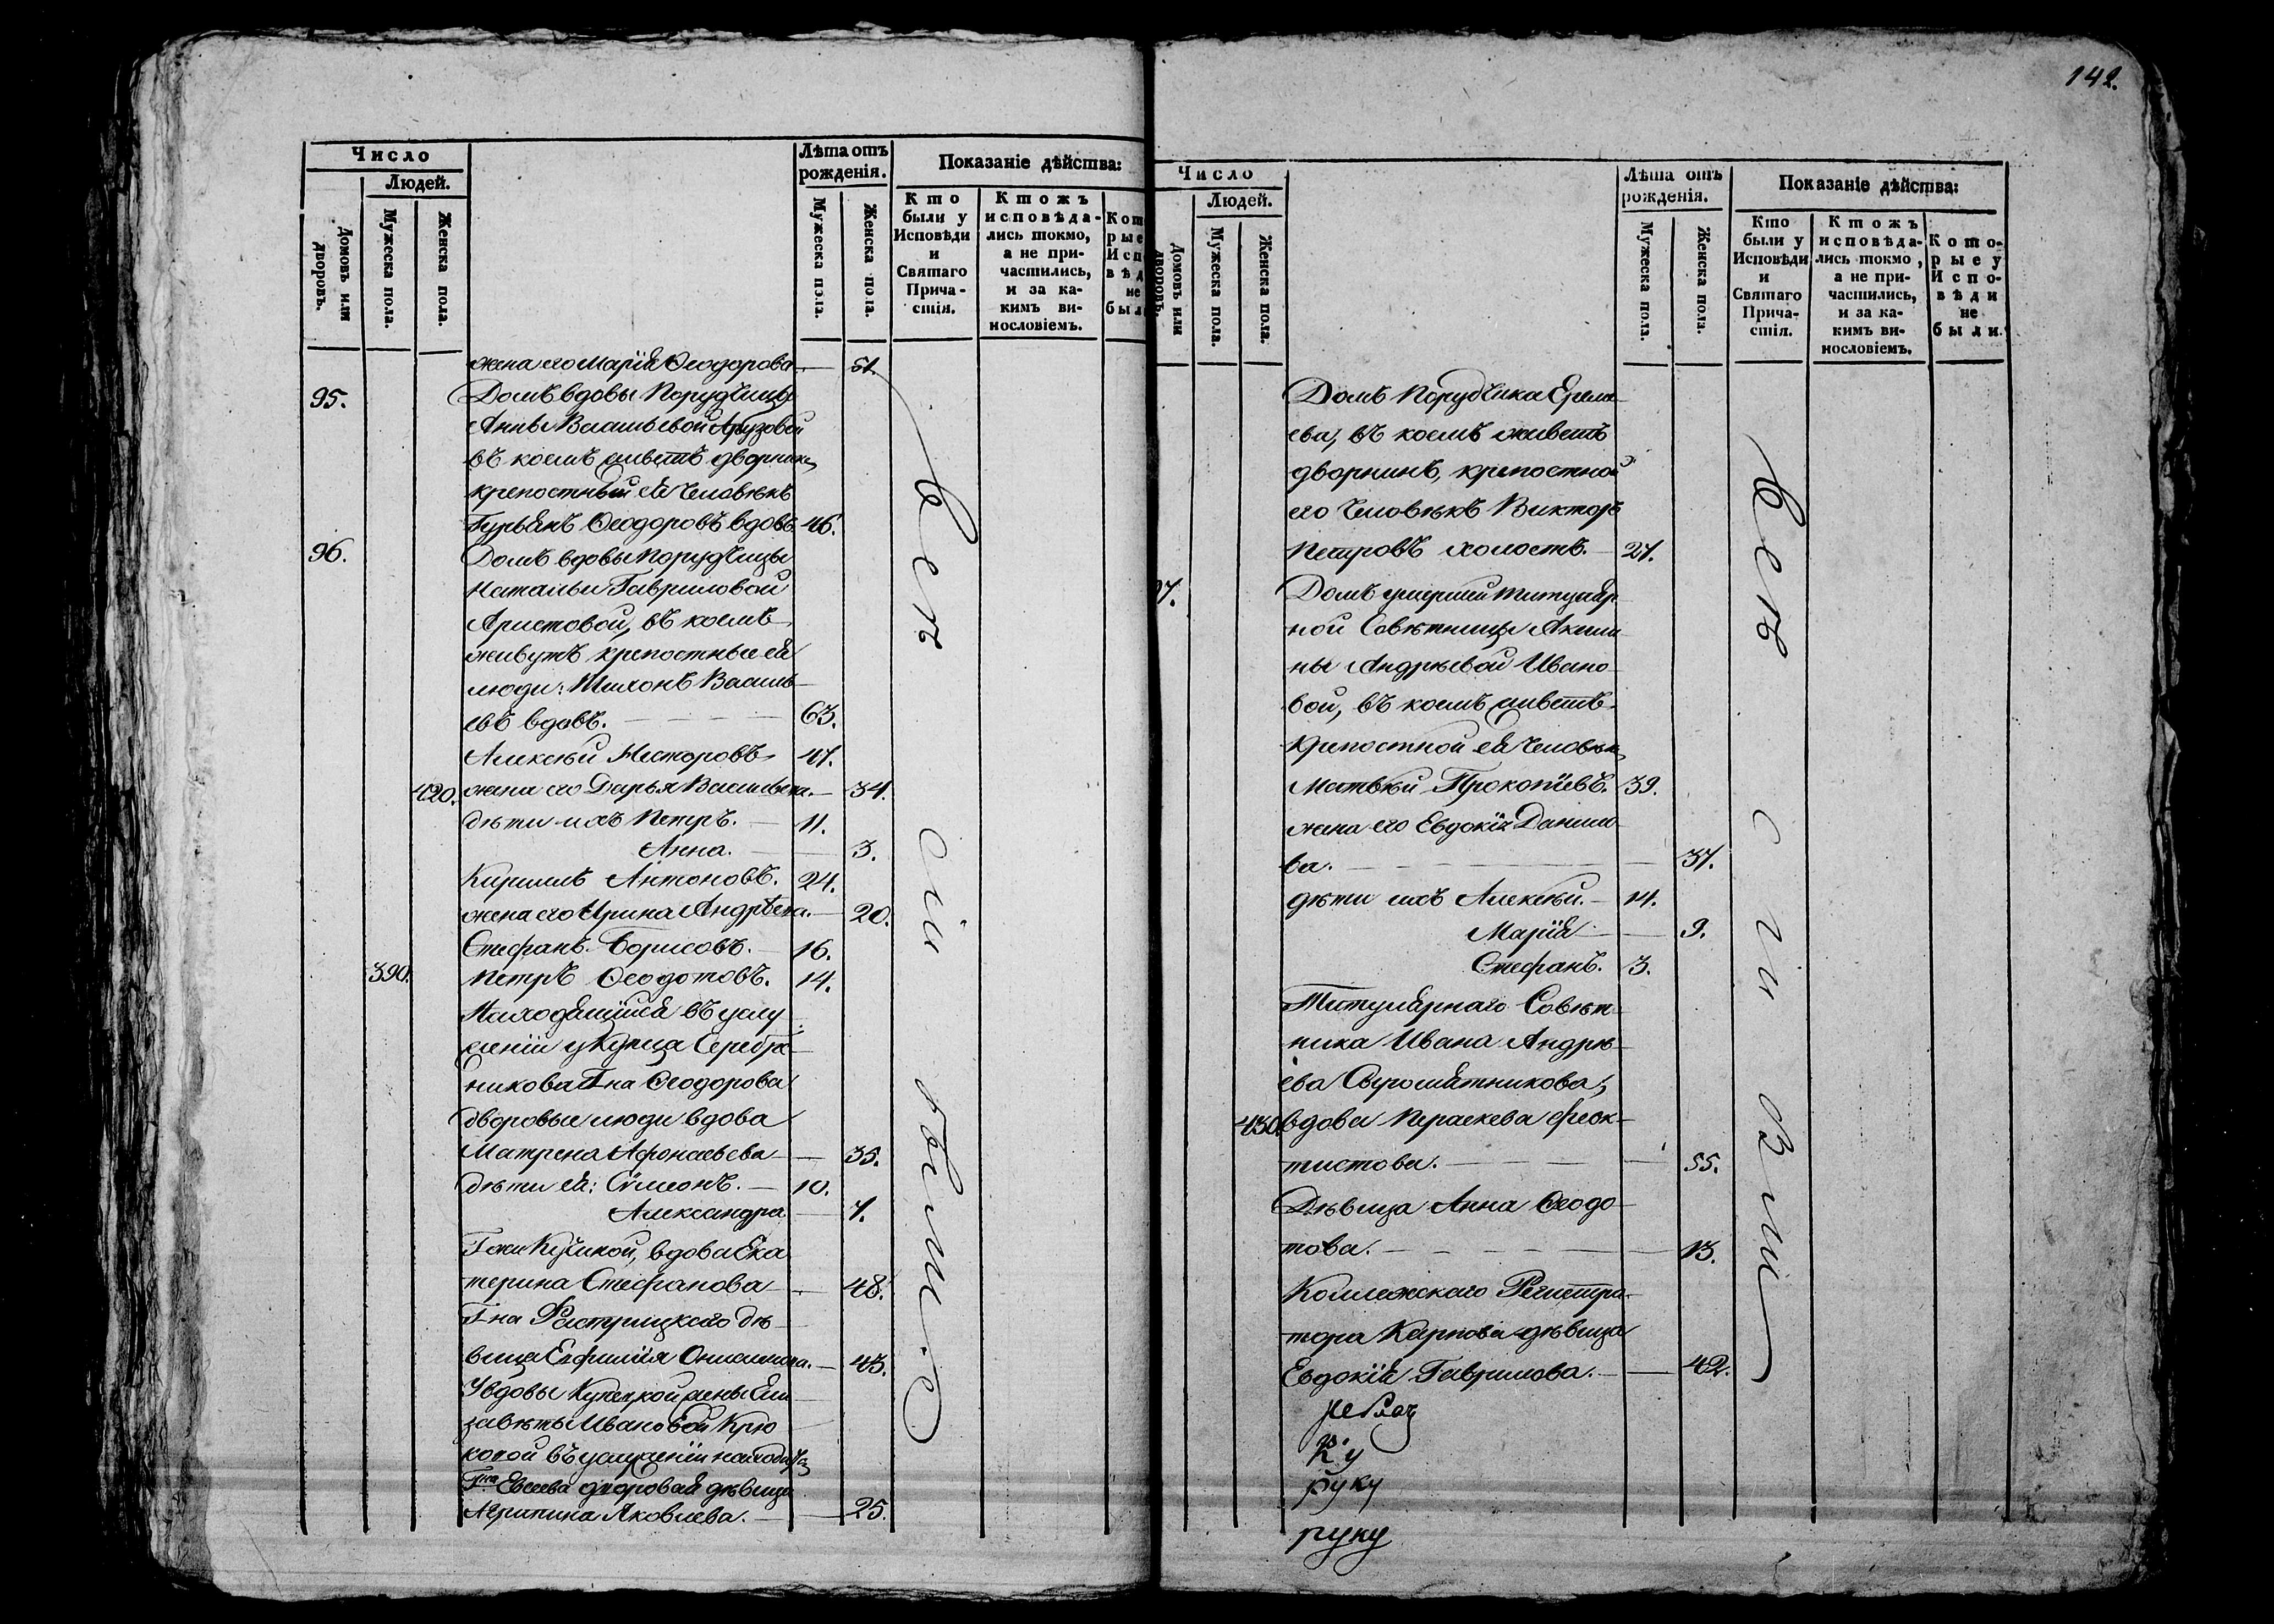 142.
Число
Людей.
Домовъ или дворовъ.
Мужеска пола.
Женска пола.
Лѣта отъ рожденія.
Мужеска пола.
Женска пола.
Показаніе дѣйства:
Кто были у Исповѣди и Святаго Причастія.
Ктожъ исповѣдались токмо, а не причастились, и за какимъ винословіемъ.
жена его Марія Ѳеодорова — 51.
95. Домъ вдовы Порудчицы
Анны Васильевой
въ коемъ живетъ дворникъ,
крепостный ея человѣкъ
Гурьянъ Ѳеодоровъ вдовъ 46.
96. Домъ вдовы Порудчицы
Натальи Гавриловой
Аристовой, въ коемъ
живутъ крепостные ея
люди: Тихонъ Василь
евъ вдовъ. — 63.
Алексѣй Несторовъ 47.
420. жена его Дарья Васильева. — 34.
дѣти ихъ Петръ. — 11.
Анна. — 3.
Кириллъ Антоновъ. 24.
жена его Ирина Андрѣева. — 20.
Стефанъ Борисовъ. — 16.
390. Петръ Ѳеодотовъ. 14.
Находящіися въ услу
женіи у Купца Серебре
никова Гна Ѳеодорова
дворовые люди вдова
Матрена Афонасьева — 35.
дѣти ея: Сѷмеонъ. — 10.
Александра — 7.
Гжи вдова Ека
терина Стефанова — 48.
Гна дѣ
вица Евфимія — 43.
У вдовы жены Ели
заветы Ивановой Крю
ковой въ услуженіи
Гна Евсеева дворовая дѣвица
Агрипина Яковлева. — 25.
Всѣ сіи были.
Число
Людей.
Домовъ или дворовъ.
Мужеска пола.
Женска пола.
Лѣта отъ рожденія.
Мужеска пола.
Женска пола.
Показаніе дѣйства:
Кто были у Исповѣди и Святаго Причастія.
Ктожъ исповѣдались токмо, а не причастились, и за какимъ винословіемъ.
Которые у Исповѣди не были.
Домъ Порудчика Ереме
ева, въ коемъ живетъ
дворникъ, крепостной
его человѣкъ Викторъ
Петровъ холостъ. — 27.
97. Домъ умершей Титуляр
ной Совѣтницы Акили
ны Андрѣевой Ивано
вой, въ коемъ живетъ
Крепостной ея человѣкъ,
Матвѣй Прокопіевъ. 39.
жена его Евдокія Данило
ва. — 37.
дѣти ихъ Алексѣй. — 14.
Марія — 9.
Стефанъ. 3.
Титулярнаго Совѣт
ника Ивана Андрѣ
ева Сыромятникова,
430. вдова Параскева Феок
тистова. — 55.
Дѣвица Анна Ѳеодо
това. — 13.
Коллежскаго Регистра
тора Карпова дѣвица
Евдокія Гаврилова. — 42.
Всѣ сіи были
руку
руку